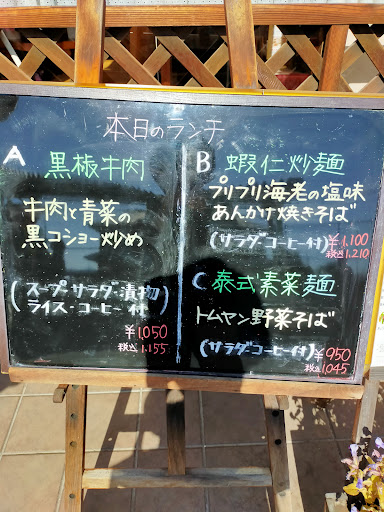 本日のランチ
A 黒極牛肉
牛肉と青菜の
黒コショー炒め
(スープ・サラダ・漬物
ライス・コーヒー付)
¥1,050
税込1,155
B 蝦仁炒麺
プリプリ海老の塩味
あんかけ焼きそば
(サラダ・コーヒー付)¥1,100
税込1,210
C 泰式素菜麺
トムヤン野菜そば
(サラダコーヒー付)¥950
税込1,045